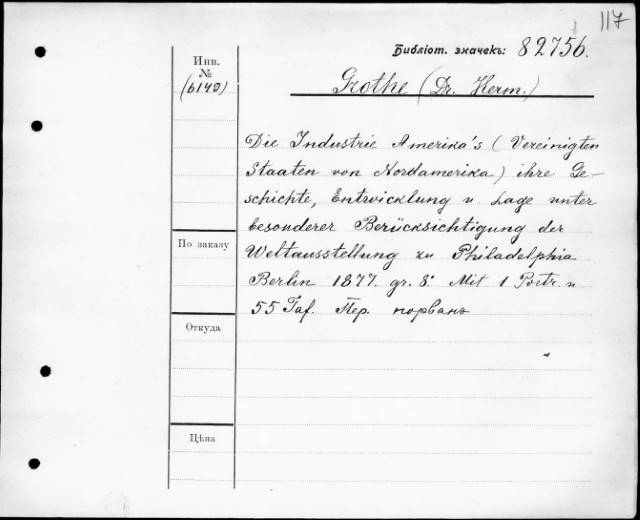 117
Библіот. значекъ: 82756.
Инв.
№
(6140)
Grothe (Dr. Herm.)
Die Industrie Amerika's (Vereinigten
Staaten von Nordamerika) ihre Ge-
schichte, Entwicklung u Lage unter
besonderer Berücksichtigung der
Weltausstellung zu Philadelphia
Berlin 1877. gr. 8º Mit 1 Portr. u
55 Taf. Пер. порванъ
По заказу
Откуда
Цѣна